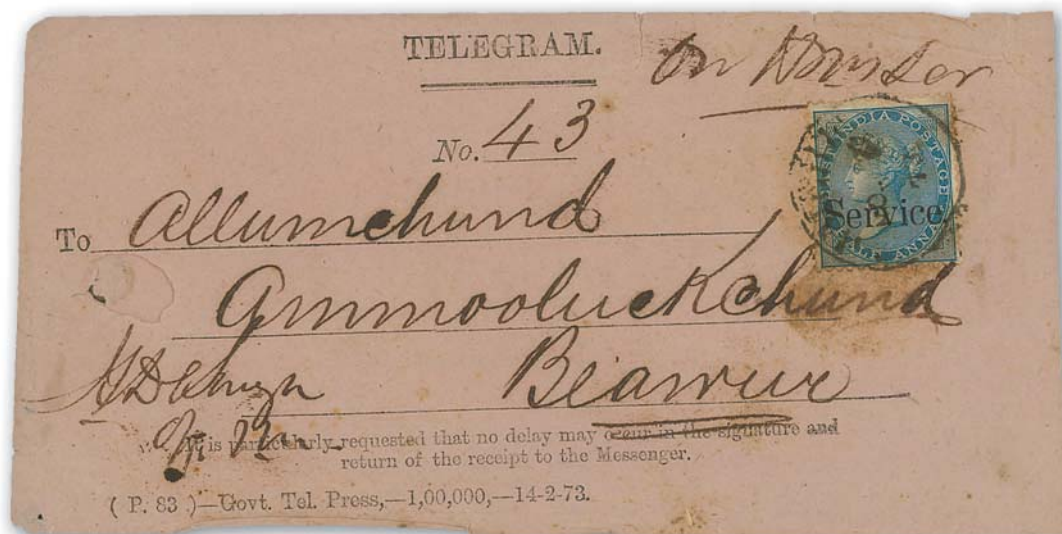 TELEGRAM.
On
No. 43
To Allumchund
Ammooluckchund
Beawur
EAST INDIA POSTAGE
Service
HALF ANNA
It is particularly requested that no delay may occur in the signature and
return of the receipt to the Messenger.
( P. 83 )—Govt. Tel. Press,—1,00,000,—14-2-73.